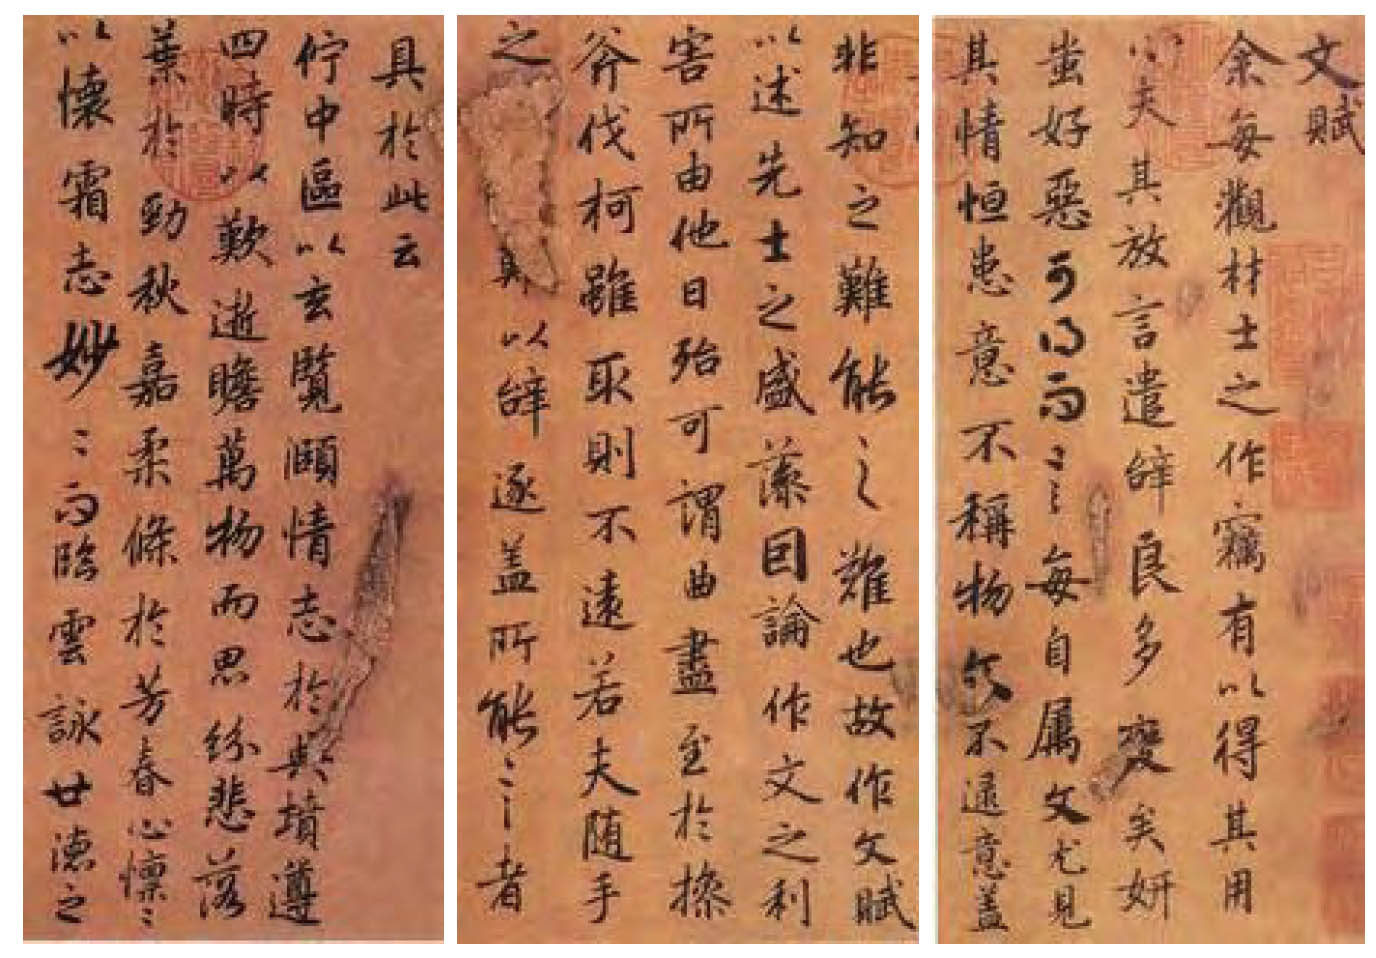 文賦
余每觀材士之作竊有以得其用
心夫其放言遣辭良多變矣妍
蚩好惡可得而言每自屬文尤見
其情恒患意不稱物文不逮意蓋
非知之難能之難也故作文賦
以述先士之盛藻因論作文之利
害所由他日殆可謂曲盡至於操
斧伐柯雖取則不遠若夫随手
之 以辭逐盖所能言者
具於此云
佇中區以玄覽頤情志於典墳遵
四時以歎逝瞻萬物而思紛悲落
葉於勁秋嘉柔條於芳春心懍〻
以懷霜志妙〻而臨雲詠世德之